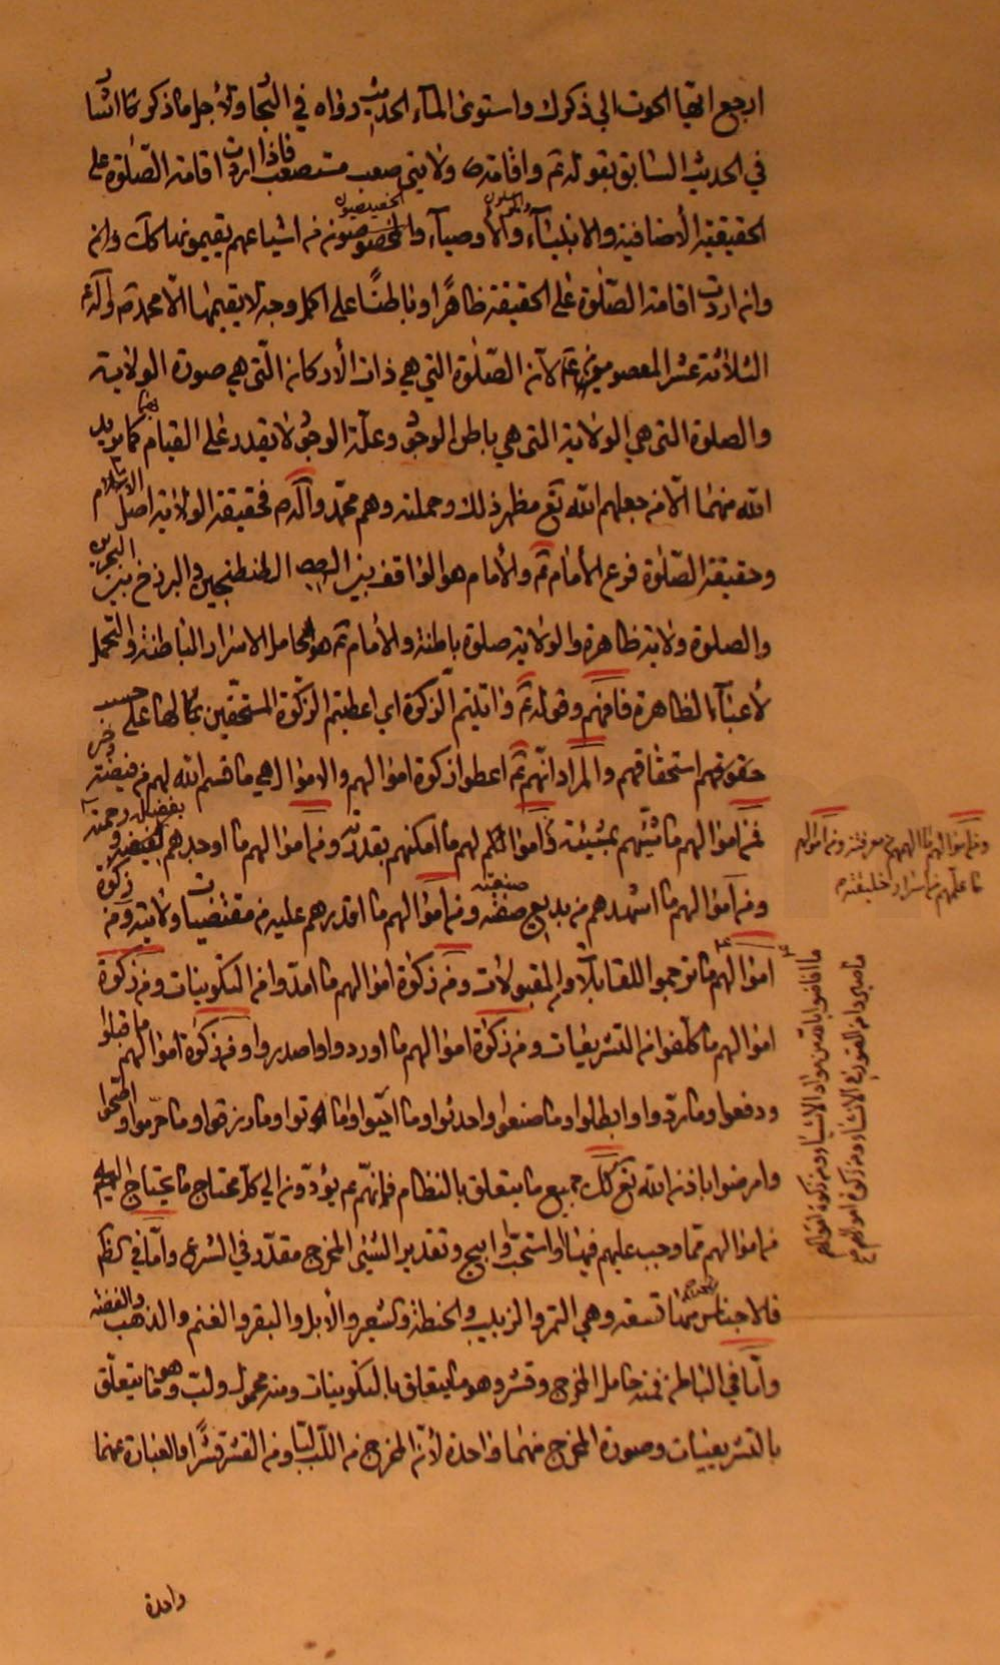 ارجع ايها الحوت الى ذكرك واستوى الماء الحديث رواه في البحار ولأجل ما ذكر كما اشار
في الحديث السابق بقوله ع واقامته ولايتي صعب مستصعب فاذا اردت اقامة الصلوة على
الحقيقة الأضافية والانبياء والمرسلون والأوصياء والخصيصون من اشياعهم يقيمونها كل
وان اردت اقامة الصلوة على الحقيقة ظاهرًا وباطنًا على اكمل وجه لا يقيمها الا محمد ص وآله
الثلاثة عشر المعصومون ع لأن الصلوة التي هي ذات الأركان التي هي صورة الولاية
والصلوة التي هي الولاية التي هي باطن الوجود وعلة الوجود لا يقدر على القيام بهما كما يريد
الله منهما الا من جعلهم الله تع مظهر ذلك وحملته وهم محمد وآله ص فحقيقة الولاية اصل الاسلام
وحقيقة الصلوة فرع الأمام ع والأمام هو الواقف بين الطتنجين والبرزخ بين البحرين
والصلوة ولاية ظاهرة والولاية صلوة باطنة والأمام ع هو الحامل الاسرار الباطنة والتحمل
لأعباء الظاهرة فافهم وقوله ع واتيتم الزكوة اي اعطيتم الزكوة المستحقين بكمالها على حسب
حقوقهم استحقاقهم والمراد انهم ع اعطوا زكوة اموالهم والاموال هي ما قسم الله لهم من فيضه
فمن اموالهم ما شيئهم بمشيئته ومن اموالهم ما امكنهم بقدرته ومن اموالهم ما اوجدهم بفضل رحمته
ومن اموالهم ما اشهدهم من بديع صنعته ومن اموالهم ما اقدرهم عليه من مقتضيات ولايته ومن زكوة
اموالهم ما ترجموا للقابلات والمقبولات ومن زكوة اموالهم ما امدوا من التكوينات ومن زكوة
اموالهم ما كلفوا من التشريعيات ومن زكوة اموالهم ما اوردوا واصدروا ومن زكوة اموالهم ما قبلوا
ودفعوا وما ردوا وابطلوا وما صنعوا واحدثوا وما اتوا وما رزقوا وما حرموا
وامرضوا باذن الله تع كل جميع ما يتعلق بالنظام فانهم ع يؤدون الى كل محتاج ما يحتاج اليه
من اموالهم مما وجب عليهم فيها او استحب وابيح وتقدير الشئ المخرج مقدر في الشرع واما في
فالاجناس منها تسعة وهي التمر والزبيب والحنطة والشعير والأبل والبقر والغنم والذهب والفضة
واما في الباطن فمنه حامل المخرج وقشر وهو ما يتعلق بالتكوينات ومنه محمول ولب وهو ما يتعلق
بالتشريعيات وصورة المخرج منهما واحدة لأن المخرج من اللب لبًا ومن القشر قشرًا والعبارة عنهما
واحدة
ومن اموالهم ما الهمهم من معرفته ومن اموالهم
ما علمهم من اسرار خليقته
ما افاضوا باذنه من مواد الاشياء ومن زكوة اموالهم
ما صوروا من الصور في الاشياء ومن زكوة اموالهم